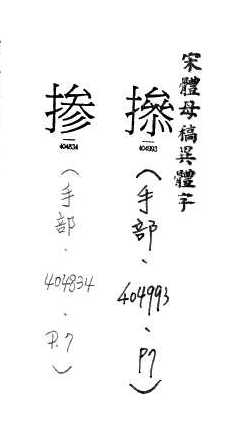 宋體母稿異體字
㨻
404993
（手部、404993、P7）
掺
404834
（手部．404834．P.7）